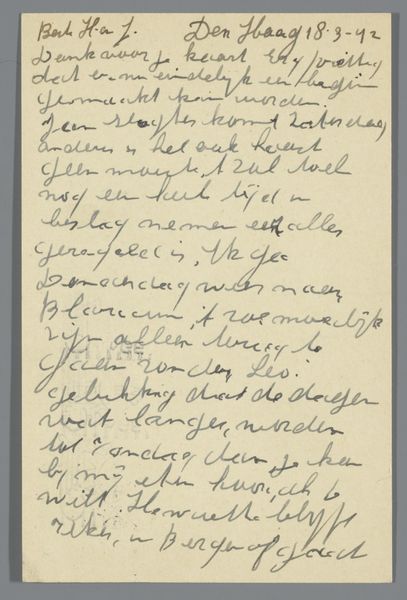 Beste H. en J. Den Haag 18-3-42
Dank voor je kaart. Erg prettig
dat er nu eindelijk een begin
gemaakt kan worden.
Jean komt Zaterdag
anders is het ook haast
geen moeite, 't zal toch
nog een heele tijd in
beslag nemen eer alles
geregeld is, Ik ga
Donderdag weer naar
Blaricum, 't zal moeilijk
zijn alleen terug te
gaan zonder Leo.
gelukkig dat de dagen
wat langer worden
tot Zondag dan, je kan
bij mij eten hoor, als je
wilt. Henriette blijft
zeker in Bergen of gaat